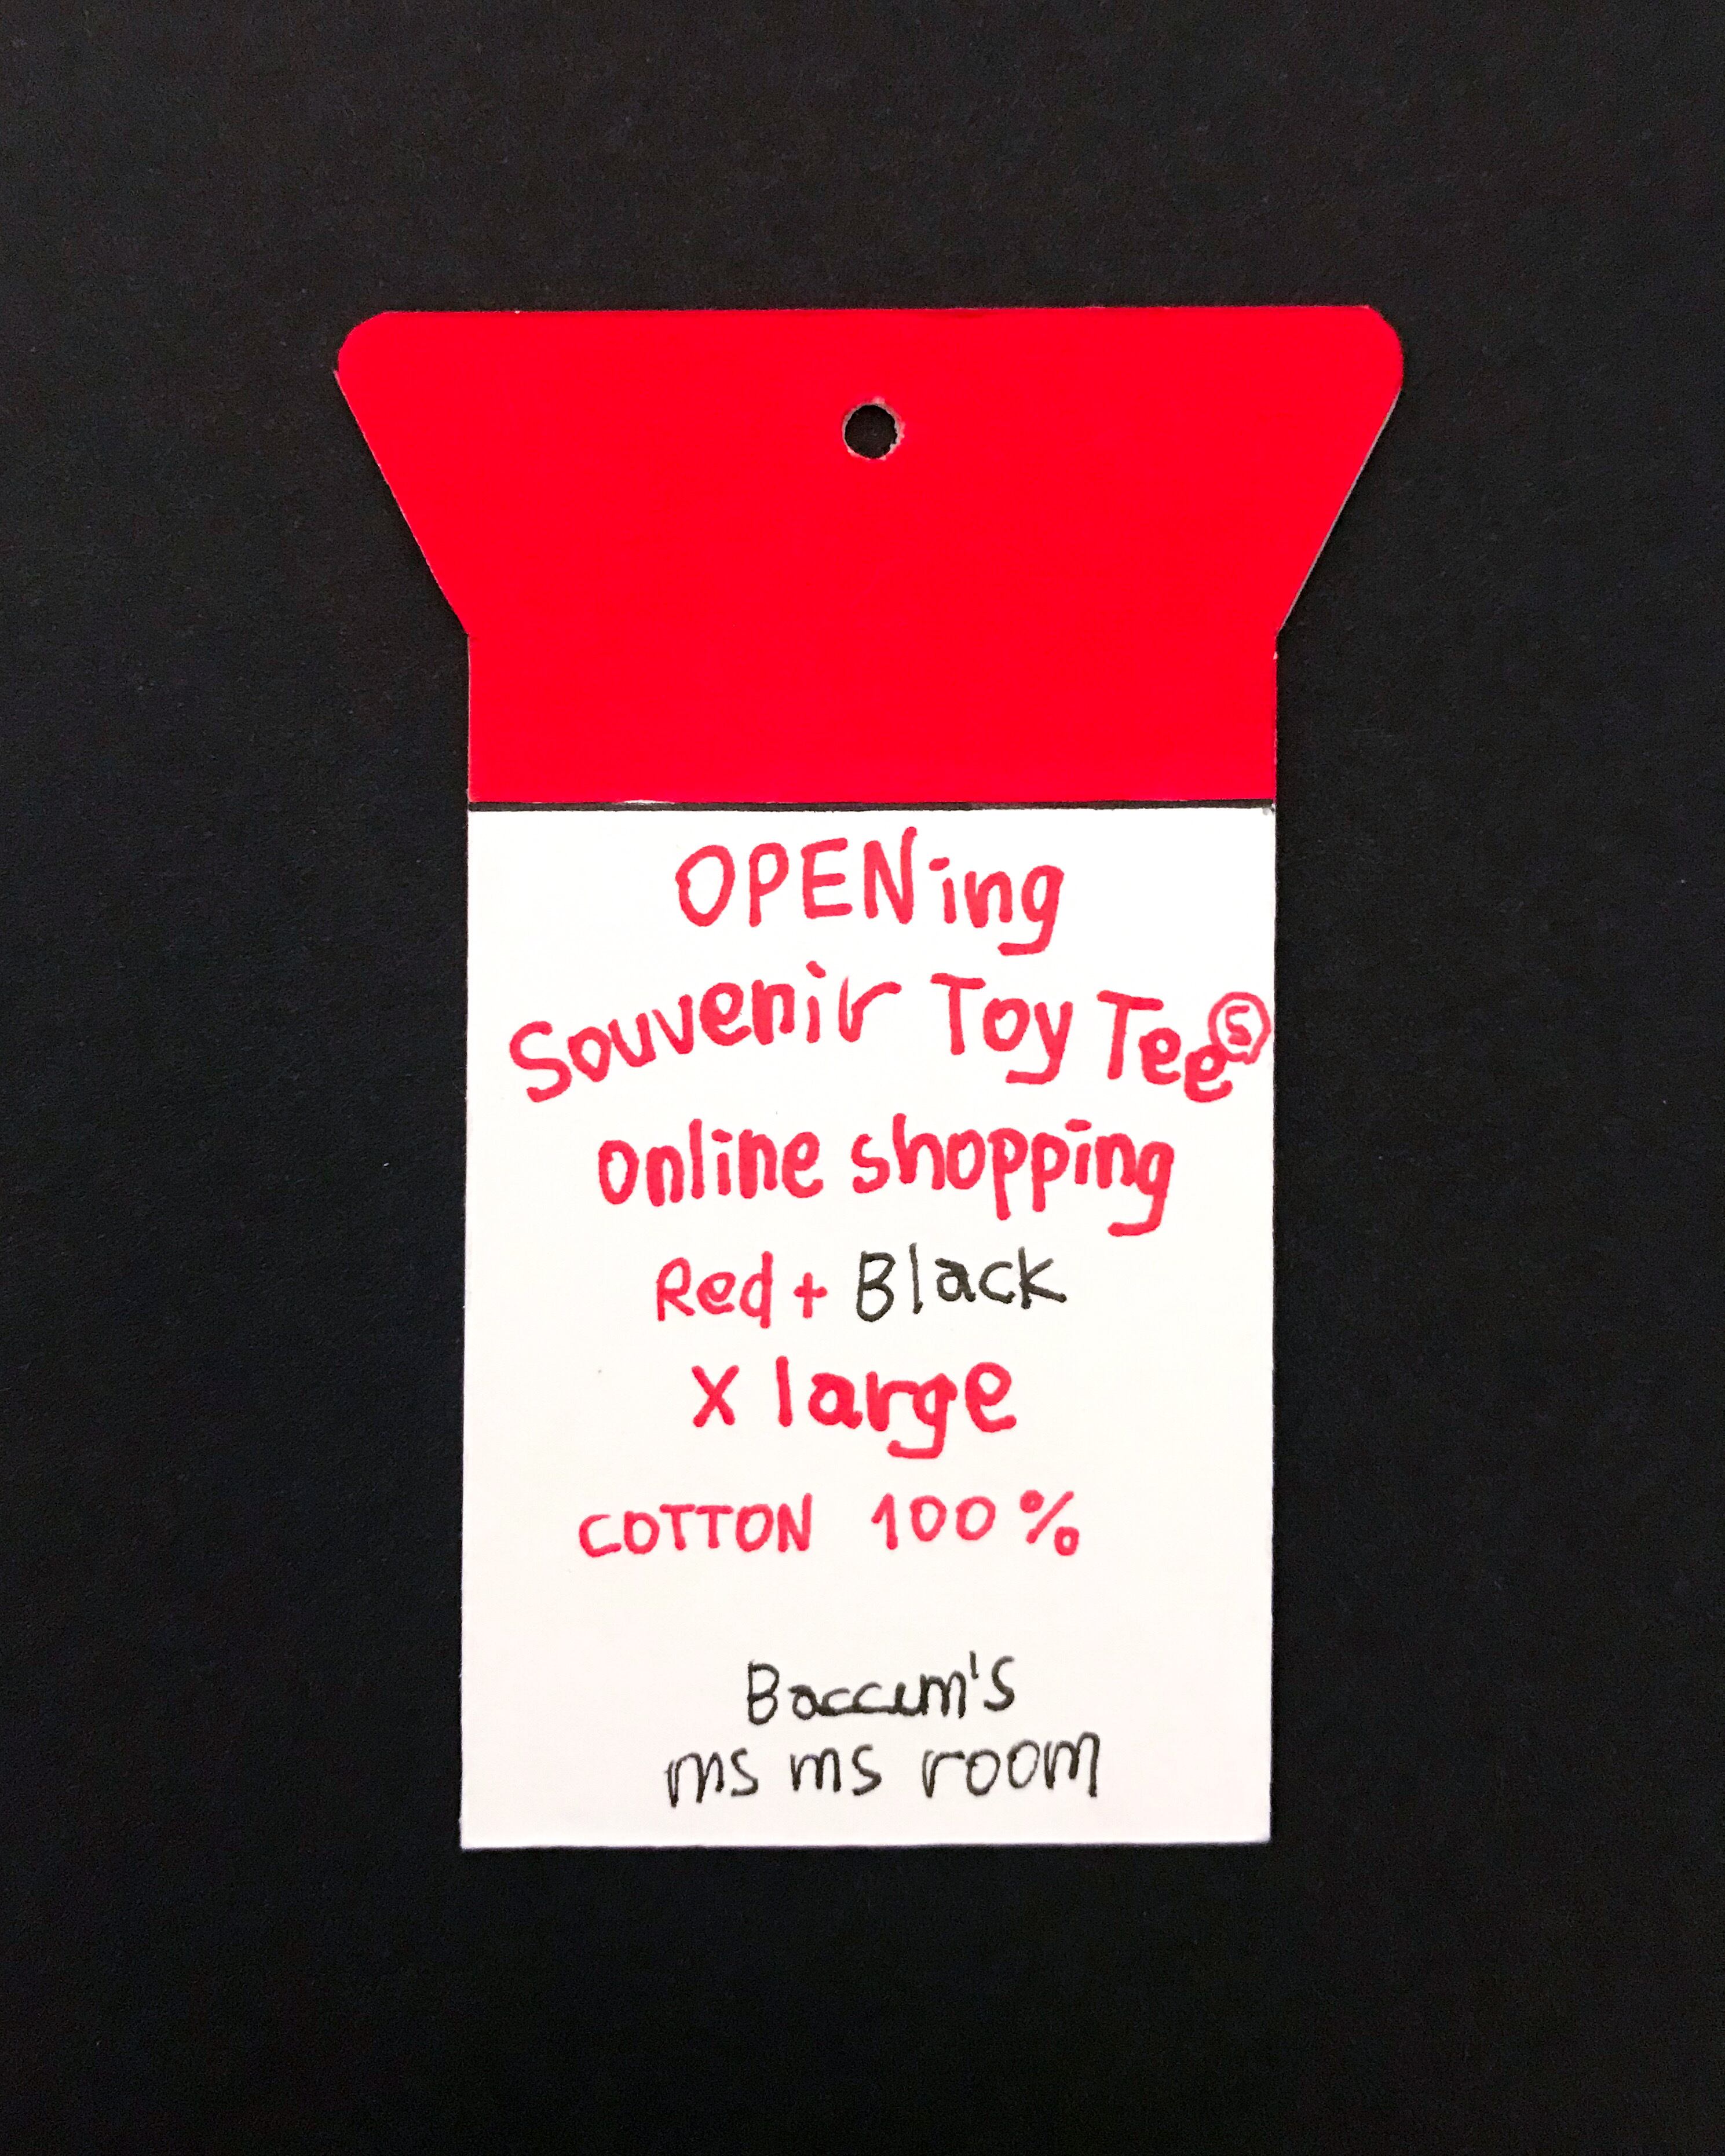 OPENing
Souvenir Toy Tee Ⓢ
online shopping
Red + Black
X large
COTTON 100%
Baccum's
ms ms room